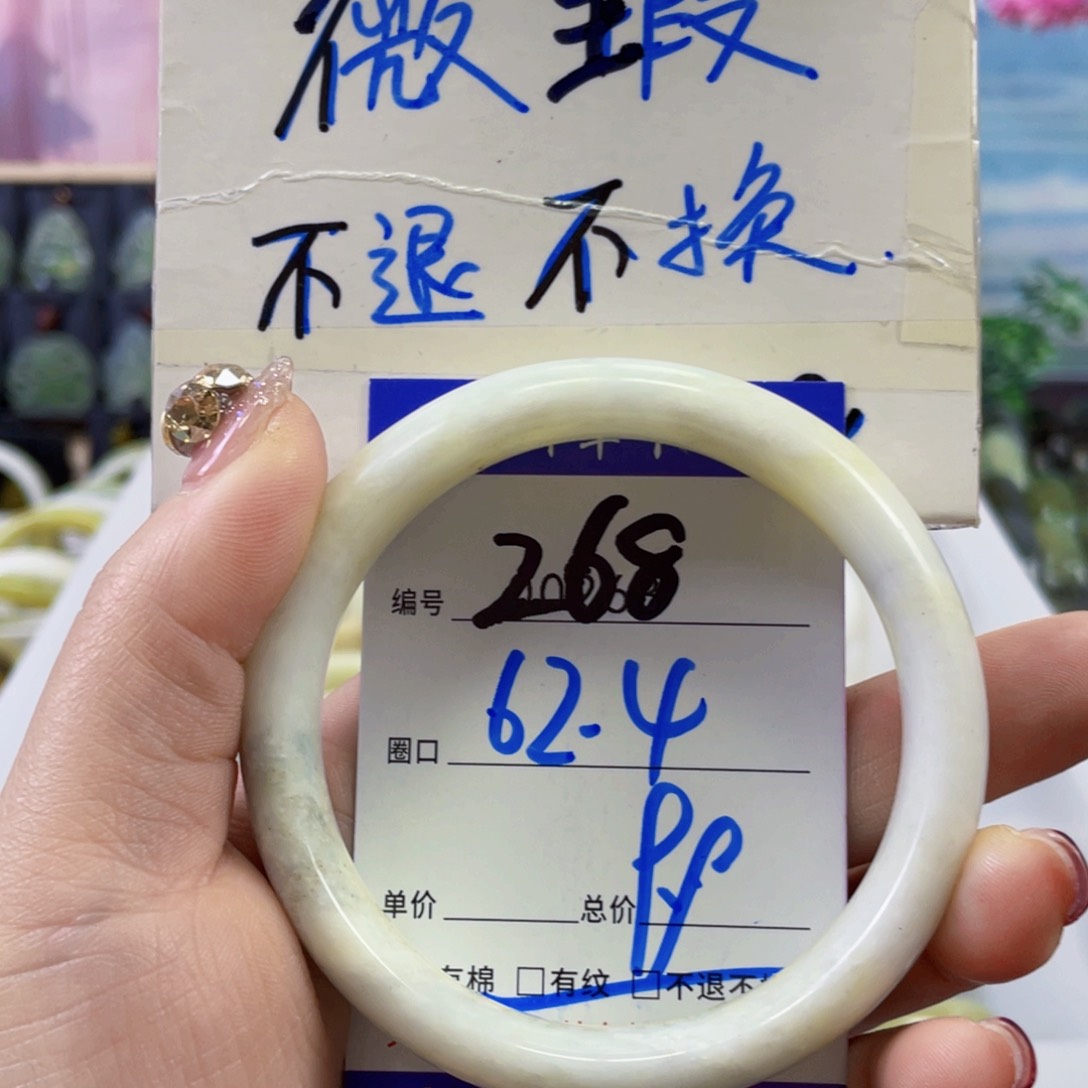 微瑕
不退不换.
编号 268
圈口 62.4
单价 总价
有棉 □有纹 □不退不换